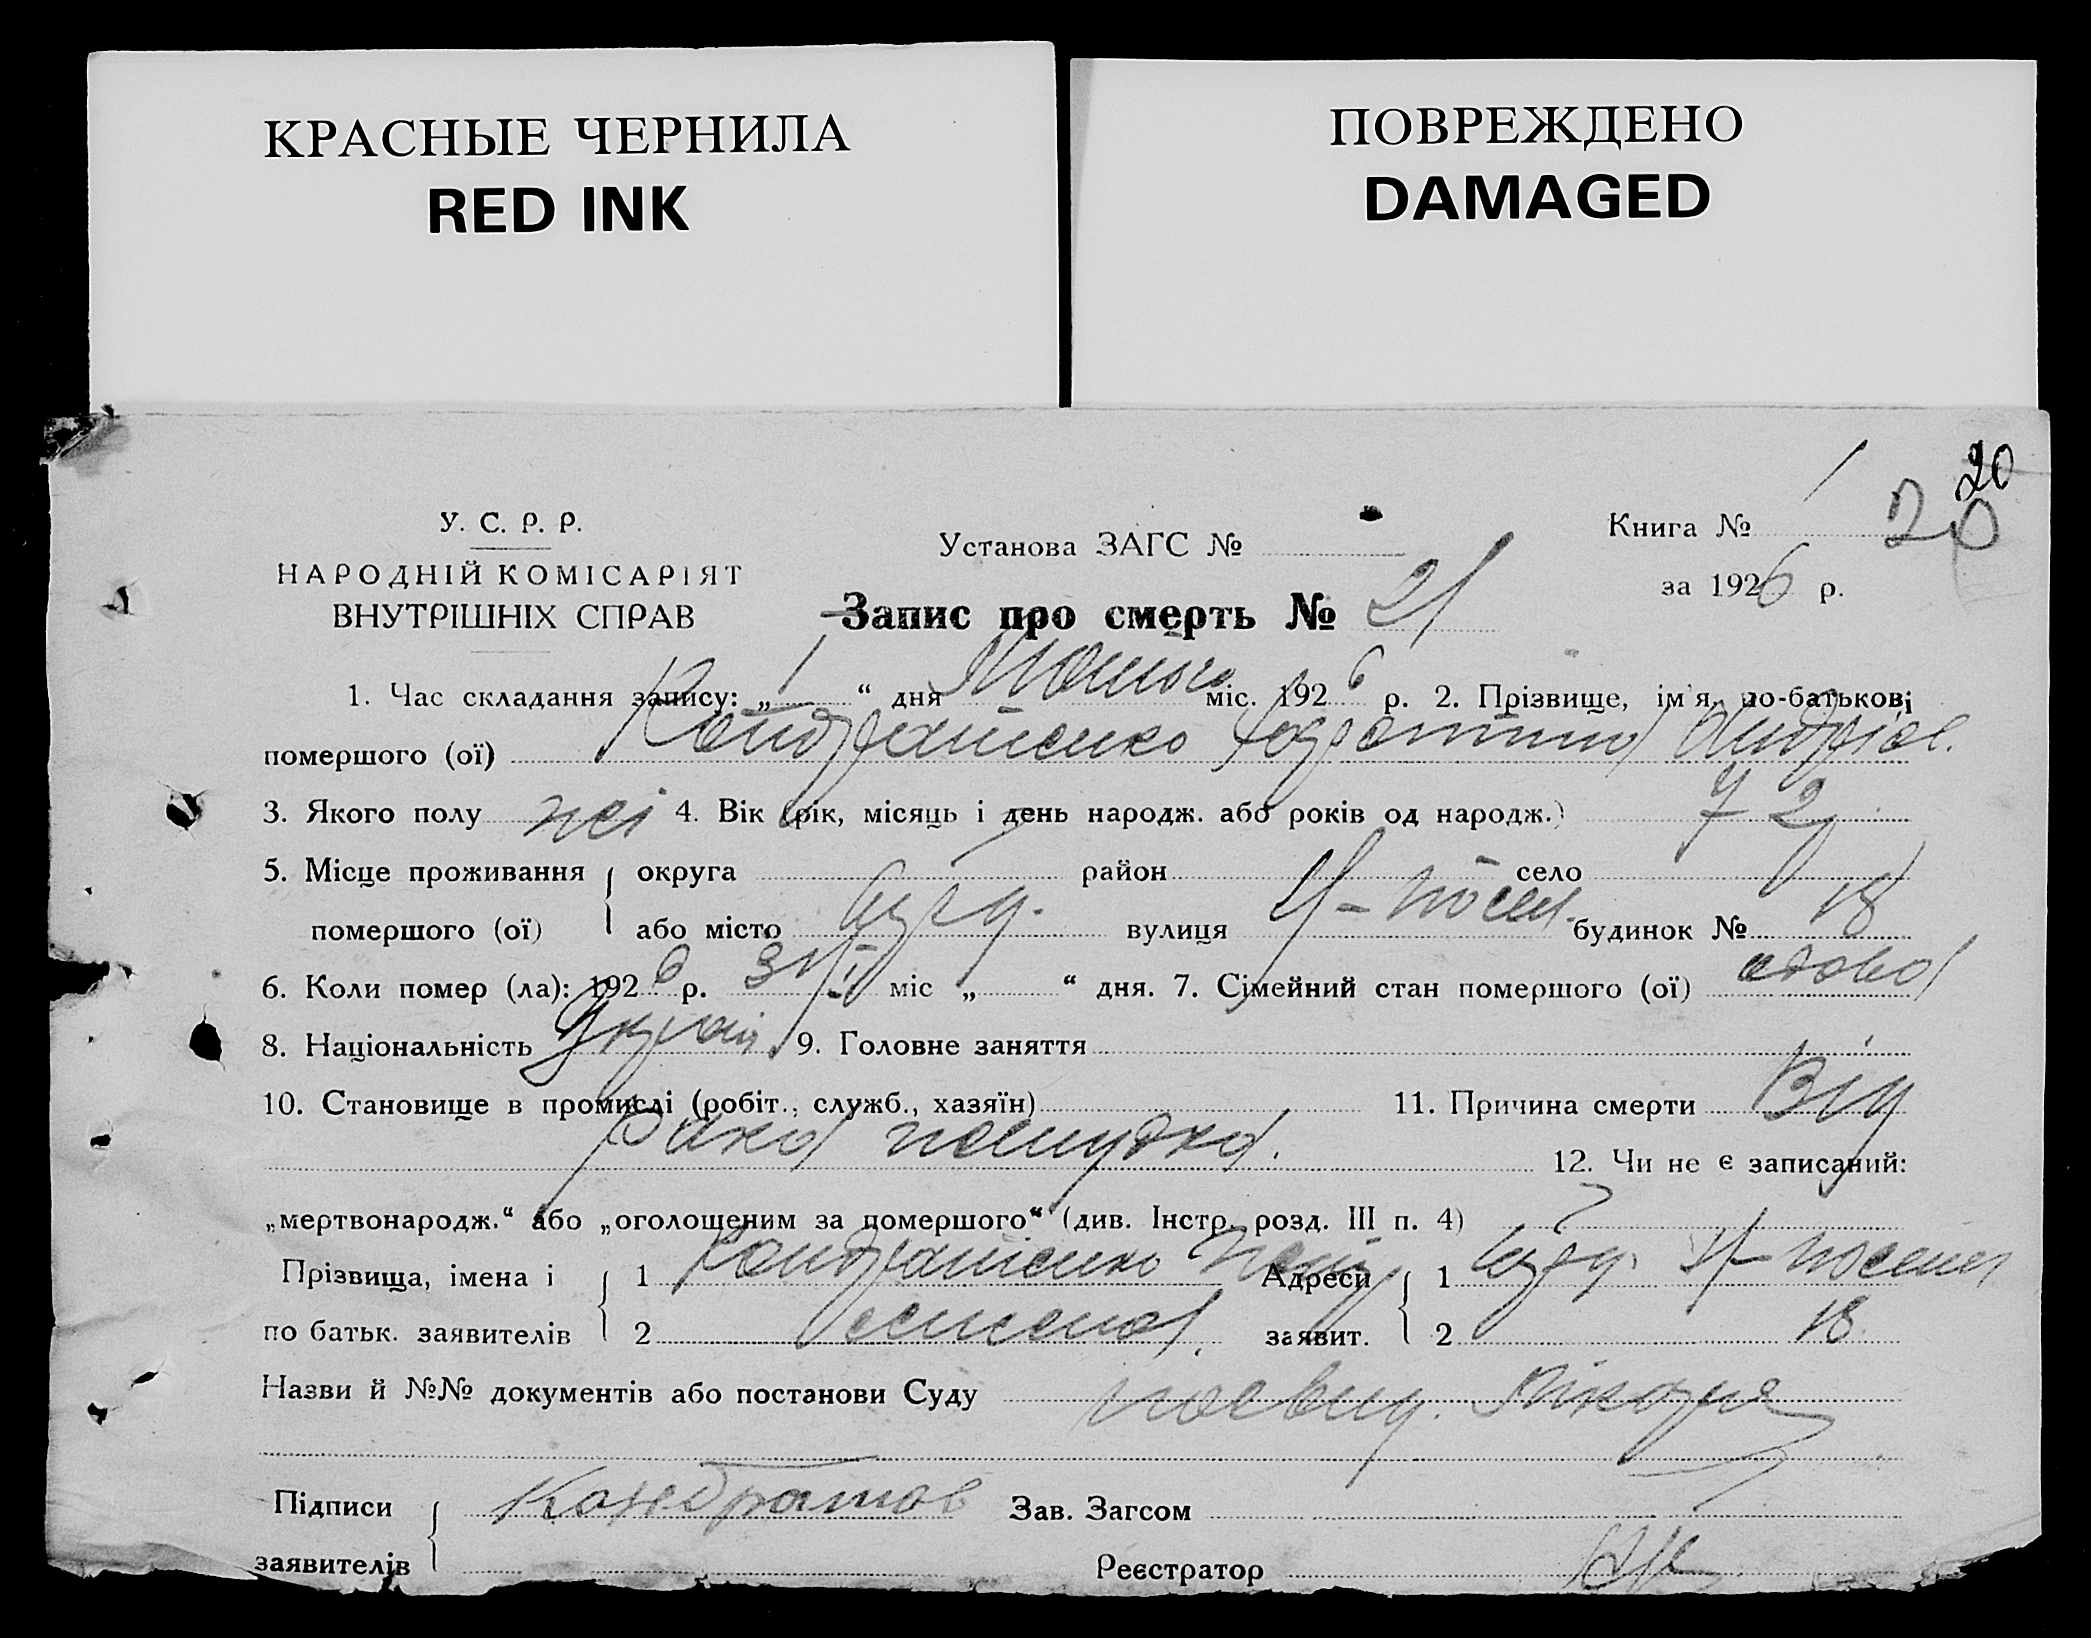 КРАСНЫЕ ЧЕРНИЛА
RED INK
ПОВРЕЖДЕНО
DAMAGED
20
20
У. С. Р. Р.
НАРОДНІЙ КОМІСАРІЯТ
ВНУТРІШНІХ СПРАВ
Установа ЗАГС №
Книга № 1
за 1926 р.
Запис про смерть № 21
1. Час складання запису: „ 1 “ дня Лютого міс. 1926 р. 2. Прізвище, ім'я, по-батькові
помершого (ої) Кондратенко Андріев.
3. Якого полу жі 4. Вік (рік, місяць і день народж. або років од народж.) 72
5. Місце проживання { округа район село
помершого (ої) або місто вулиця будинок № 18
6. Коли помер (ла): 1926 р. 31/I міс „ “ дня. 7. Сімейний стан помершого (ої) вдова
8. Національність Україн. 9. Головне заняття
10. Становище в промислі (робіт., служб., хазяїн) 11. Причина смерти Від
Рака желудка. 12. Чи не є записаний:
„мертвонародж.“ або „оголошеним за помершого“ (див. Інстр. розд. III п. 4)
Прізвища, імена і { 1 Кондратенко Адреси { 1
по батьк. заявителів 2 заявит. 2 18
Назви й №№ документів або постанови Суду посвид. Лікаря
Підписи { Зав. Загсом
заявителів Реєстратор